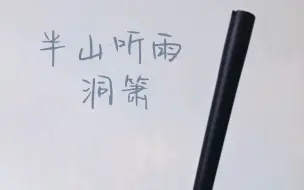 半山听雨
洞箫